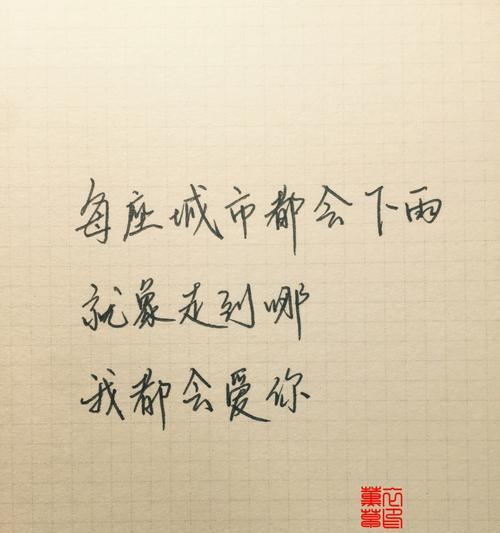 每座城市都会下雨
就象走到哪
我都会爱你